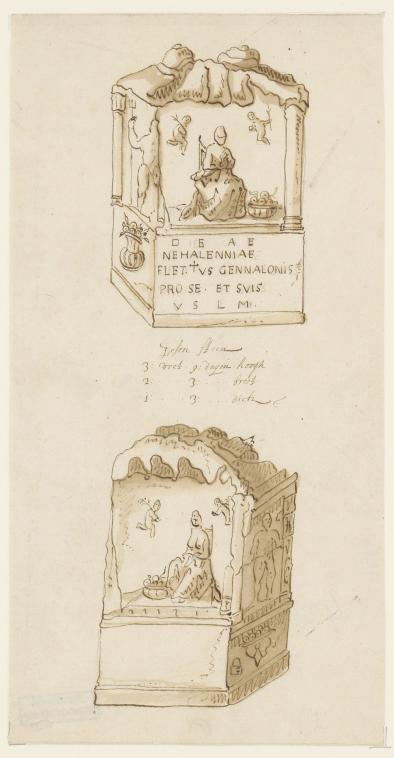 DEAE
NEHALENNIAE
FLET✝VS GENNALONIS
PRO SE. ET SUIS
V S L M.
Desen Steen
3: voet 9: duÿm hoogh
2. 3: bret
1: 3: dick